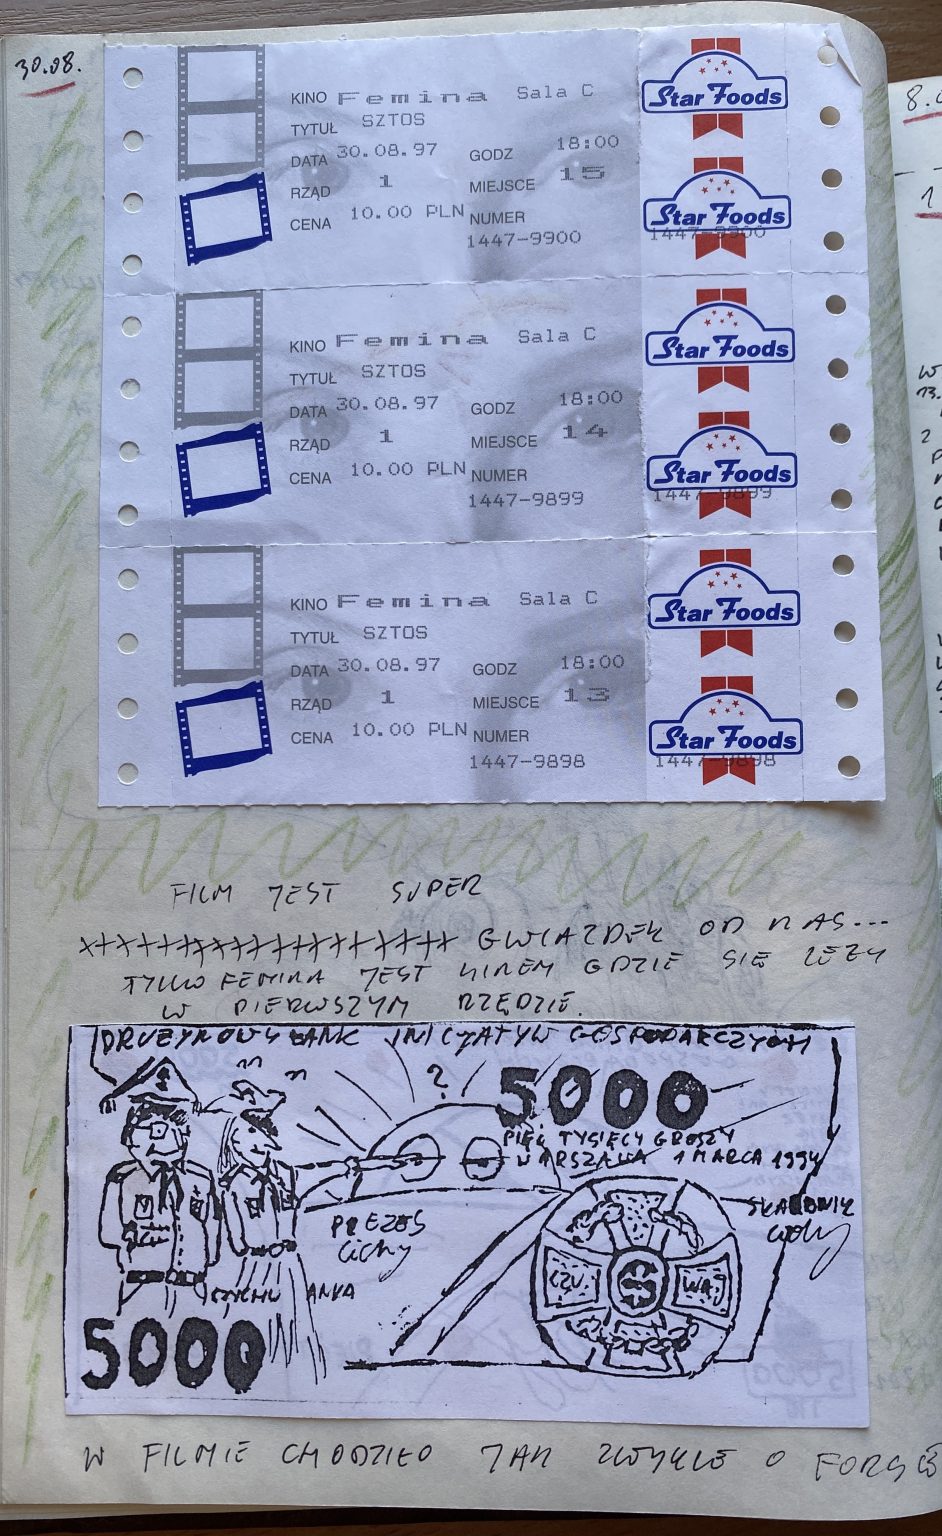 30.08.
KINO Femina Sala C
TYTUŁ SZTOS
DATA 30.08.97 GODZ 18:00
RZĄD 1 MIEJSCE 15
CENA 10.00 PLN NUMER
1447-9900
Star Foods
Star Foods
1447-9900
KINO Femina Sala C
TYTUŁ SZTOS
DATA 30.08.97 GODZ 18:00
RZĄD 1 MIEJSCE 14
CENA 10.00 PLN NUMER
1447-9899
Star Foods
Star Foods
1447-9899
KINO Femina Sala C
TYTUŁ SZTOS
DATA 30.08.97 GODZ 18:00
RZĄD 1 MIEJSCE 13
CENA 10.00 PLN NUMER
1447-9898
Star Foods
Star Foods
1447-9898
FILM JEST SUPER
GWIAZDEK OD NAS...
TYLKO FEMINA JEST KINEM GDZIE SIĘ LEŻY
W PIERWSZYM RZĘDZIE.
DRUŻYNOWY BANK INICJATYW GOSPODARCZYCH
?
5000
PIĘĆ TYSIĘCY GROSZY
WARSZAWA 1 MARCA 1994
PREZES
Cichy
SKARBNIK
CZU
WAJ
5000
W FILMIE CHODZIŁO JAK ZWYKLE O FORSĘ